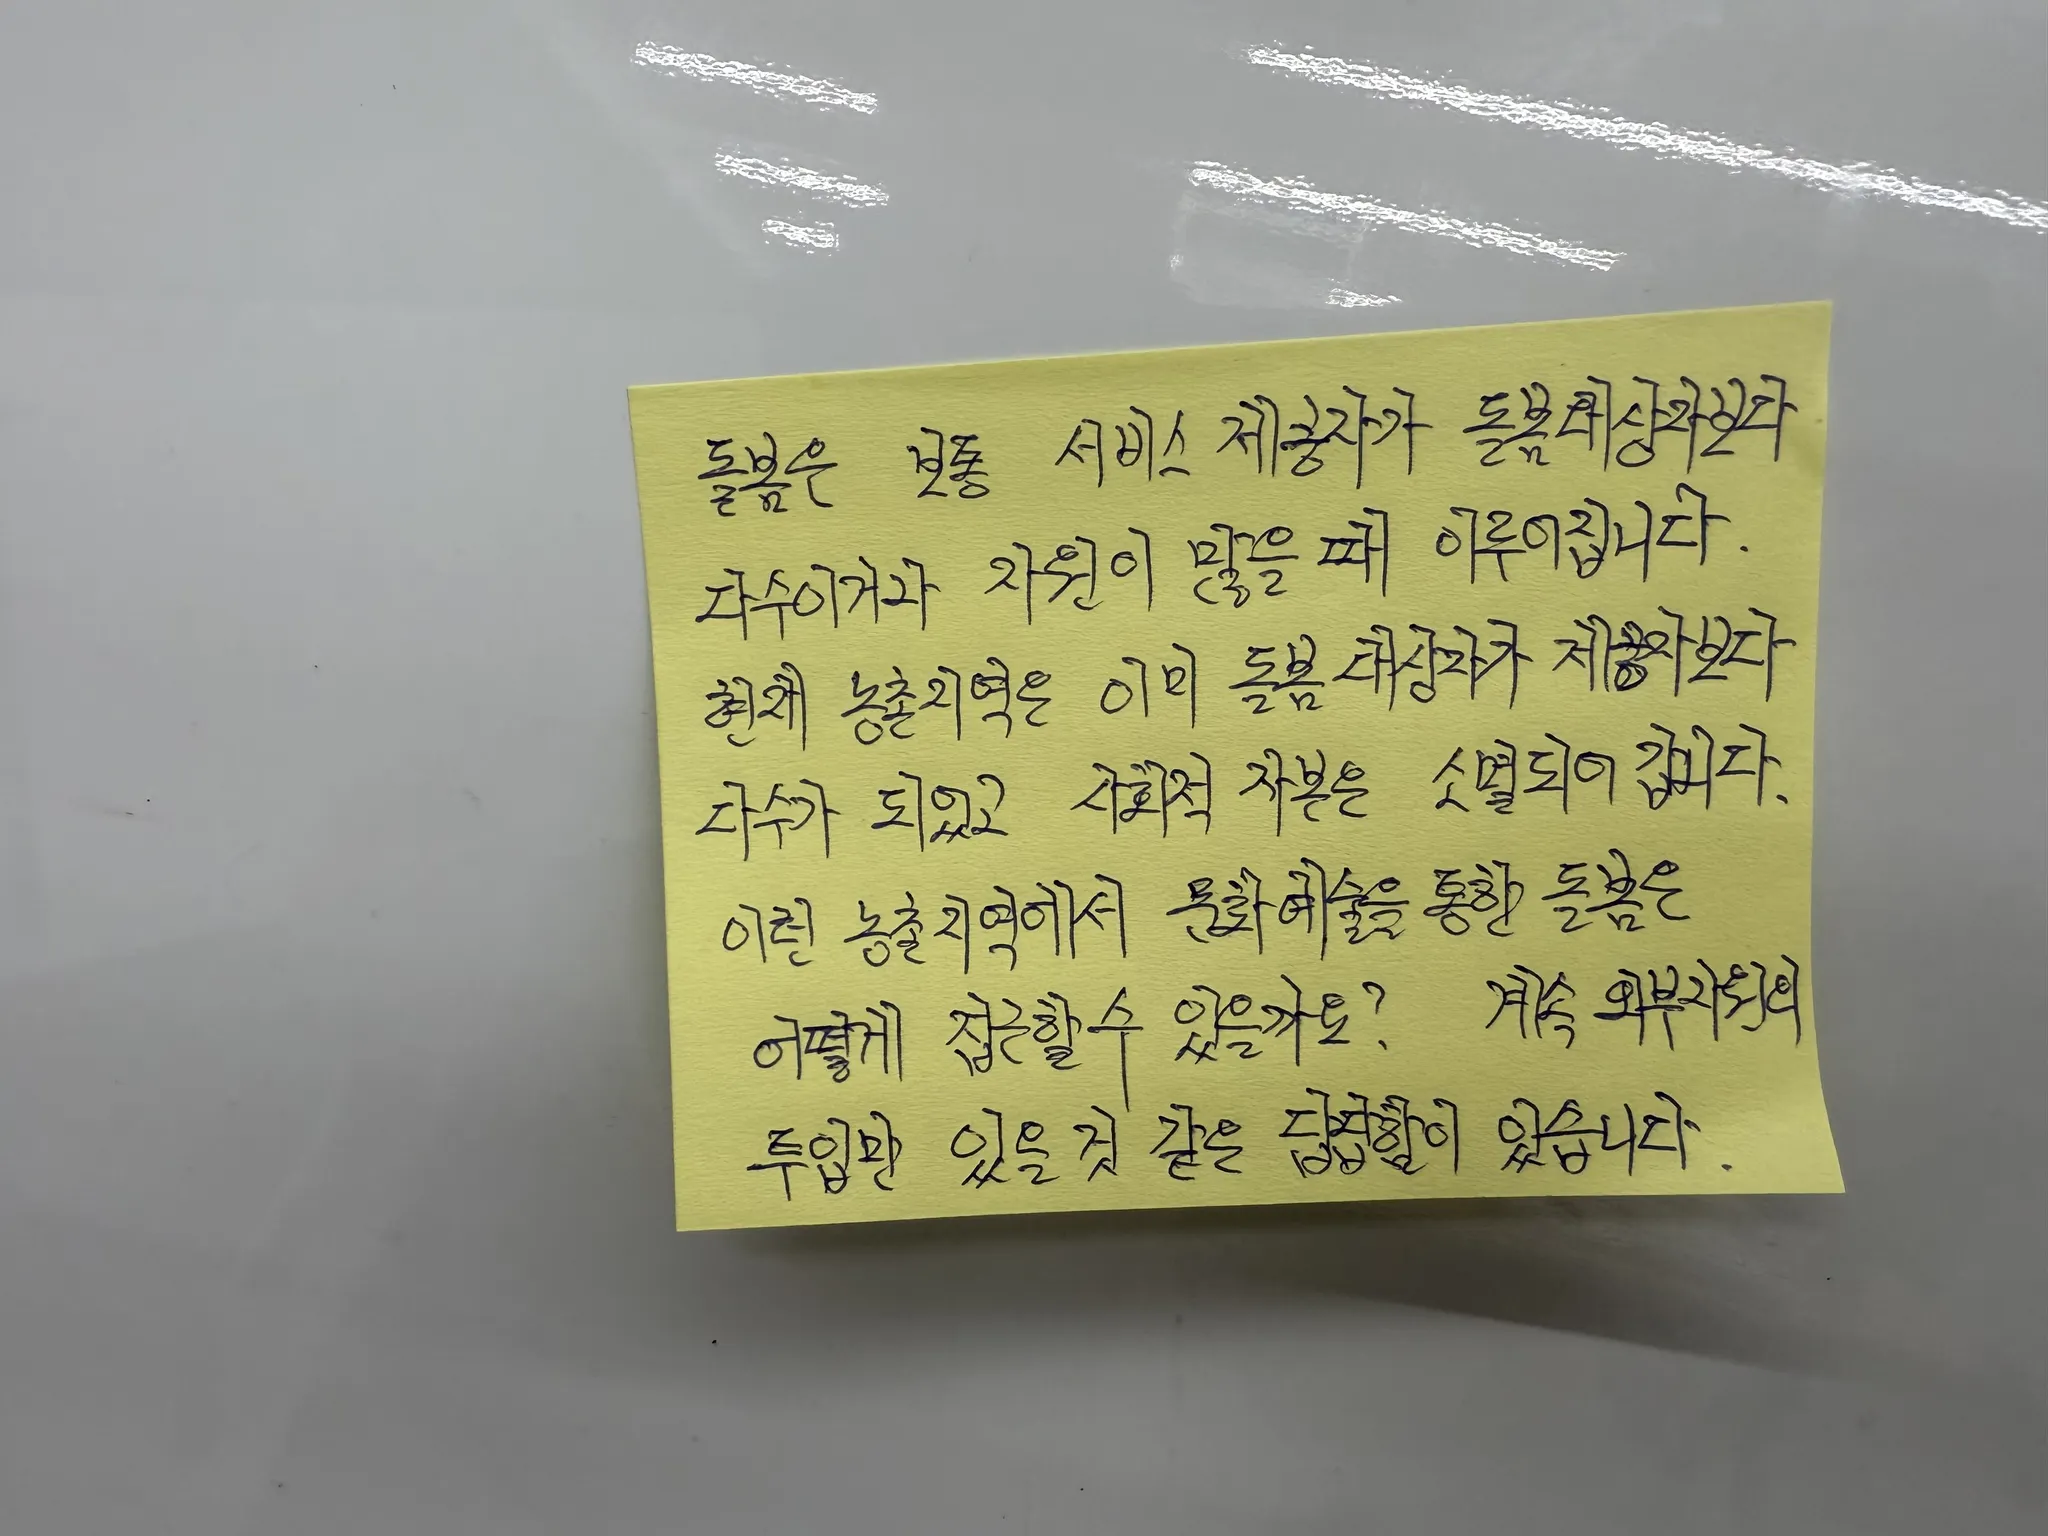 돌봄은 보통 서비스 제공자가 돌봄대상자보다
다수이거나 자원이 많을 때 이루어집니다.
현재 농촌지역은 이미 돌봄 대상자가 제공자보다
다수가 되었고 사회적 자본은 소멸되어 갑니다.
이런 농촌지역에서 문화예술을 통한 돌봄은
어떻게 접근할 수 있을까요? 계속 외부자원의
투입만 있을 것 같은 답답함이 있습니다.